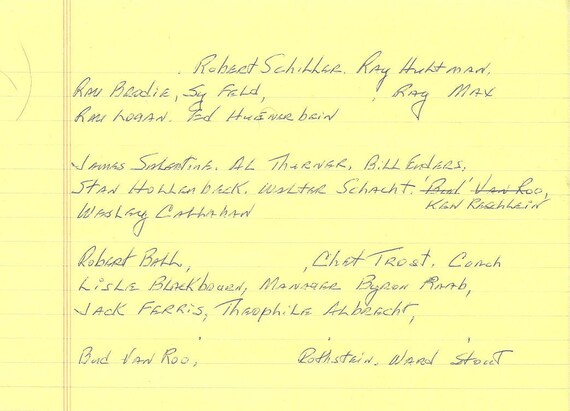 Robert Schiller. Ray Hultman.
Ray Brodie, Sy Feld, Ray Max
Ray Logan. Ted Huenerbein
James Salentine. Al Thurner, Bill Enders,
Stan Hollenbeck. Walter Schacht. 'Bud' Van Roo,
Ken Reschlein
Wesley Callahan
Robert Ball, , Chet Trost. Coach
Lisle Blackbourn, Manager Byron Raab,
Jack Ferris, Theophile Albrecht,
Bud Van Roo, Rothstein. Ward Stout